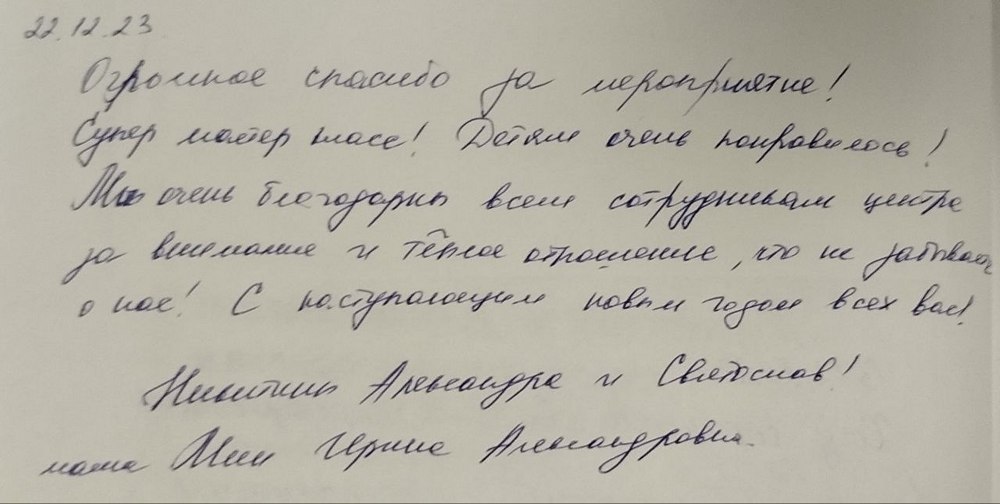 22.12.23
Огромное спасибо за мероприятие!
Супер мастер класс! Детям очень понравилось!
Мы очень благодарны всем сотрудникам центра
за внимание и тёплое отношение, что не забываете
о нас! С наступающим новым годом всех вас!
Никитины Александра и Святослав!
мама Мин Ирина Александровна.